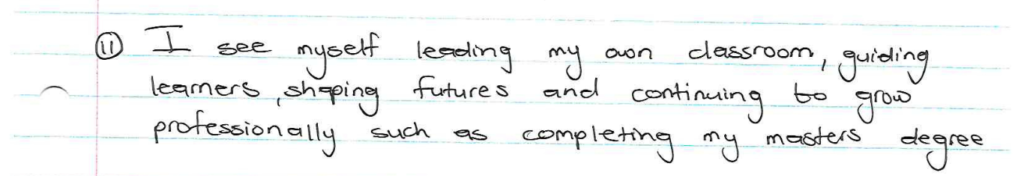 ⑪ I see myself leading my own classroom, guiding
learners, shaping futures and continuing to grow
professionally such as completing my masters degree